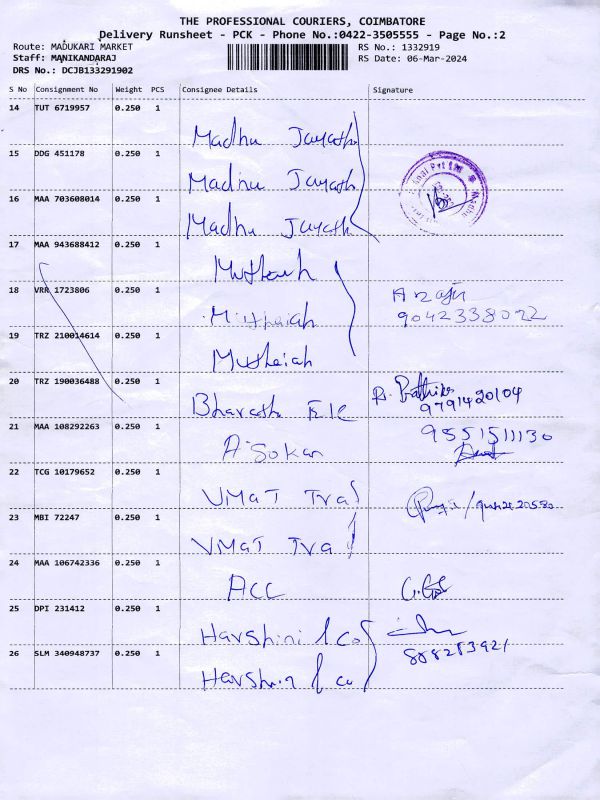 THE PROFESSIONAL COURIERS, COIMBATORE
Delivery Runsheet - PCK - Phone No.:0422-3505555 - Page No.:2
Route: MADUKARI MARKET
RS No.: 1332919
Staff: MANIKANDARAJ
RS Date: 06-Mar-2024
DRS No.: DCJB133291902
S No Consignment No Weight PCS Consignee Details Signature
14 TUT 6719957 0.250 1
Madhu Jayash
15 DDG 451178 0.250 1
Madhu Jayash
16 MAA 703608014 0.250 1
Madhu Jayash
17 MAA 943688412 0.250 1
Mutheiah
18 VRR 1723806 0.250 1
Mutheiah
9042338022
19 TRZ 210014614 0.250 1
Mutheiah
20 TRZ 190036488 0.250 1
Bharath
9791420104
21 MAA 108292263 0.250 1
9551511130
Asokan
22 TCG 10179652 0.250 1
VMaT Tra
23 MBI 72247 0.250 1
VMaT Tra
24 MAA 106742336 0.250 1
ACC
25 DPI 231412 0.250 1
Harshini & Co
26 SLM 340948737 0.250 1
Harshini & Co